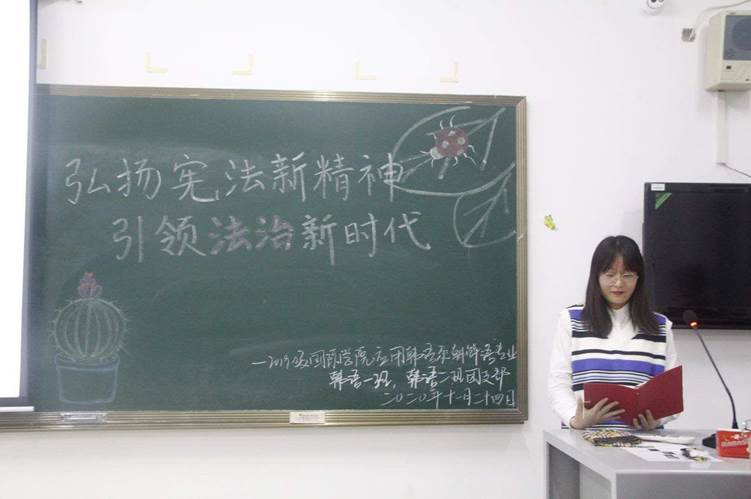 弘扬宪法新精神
引领法治新时代
一2019级国际学院应用韩语系朝鲜语专业
韩语一班、韩语二班团支部
二〇二〇年十一月二十四日